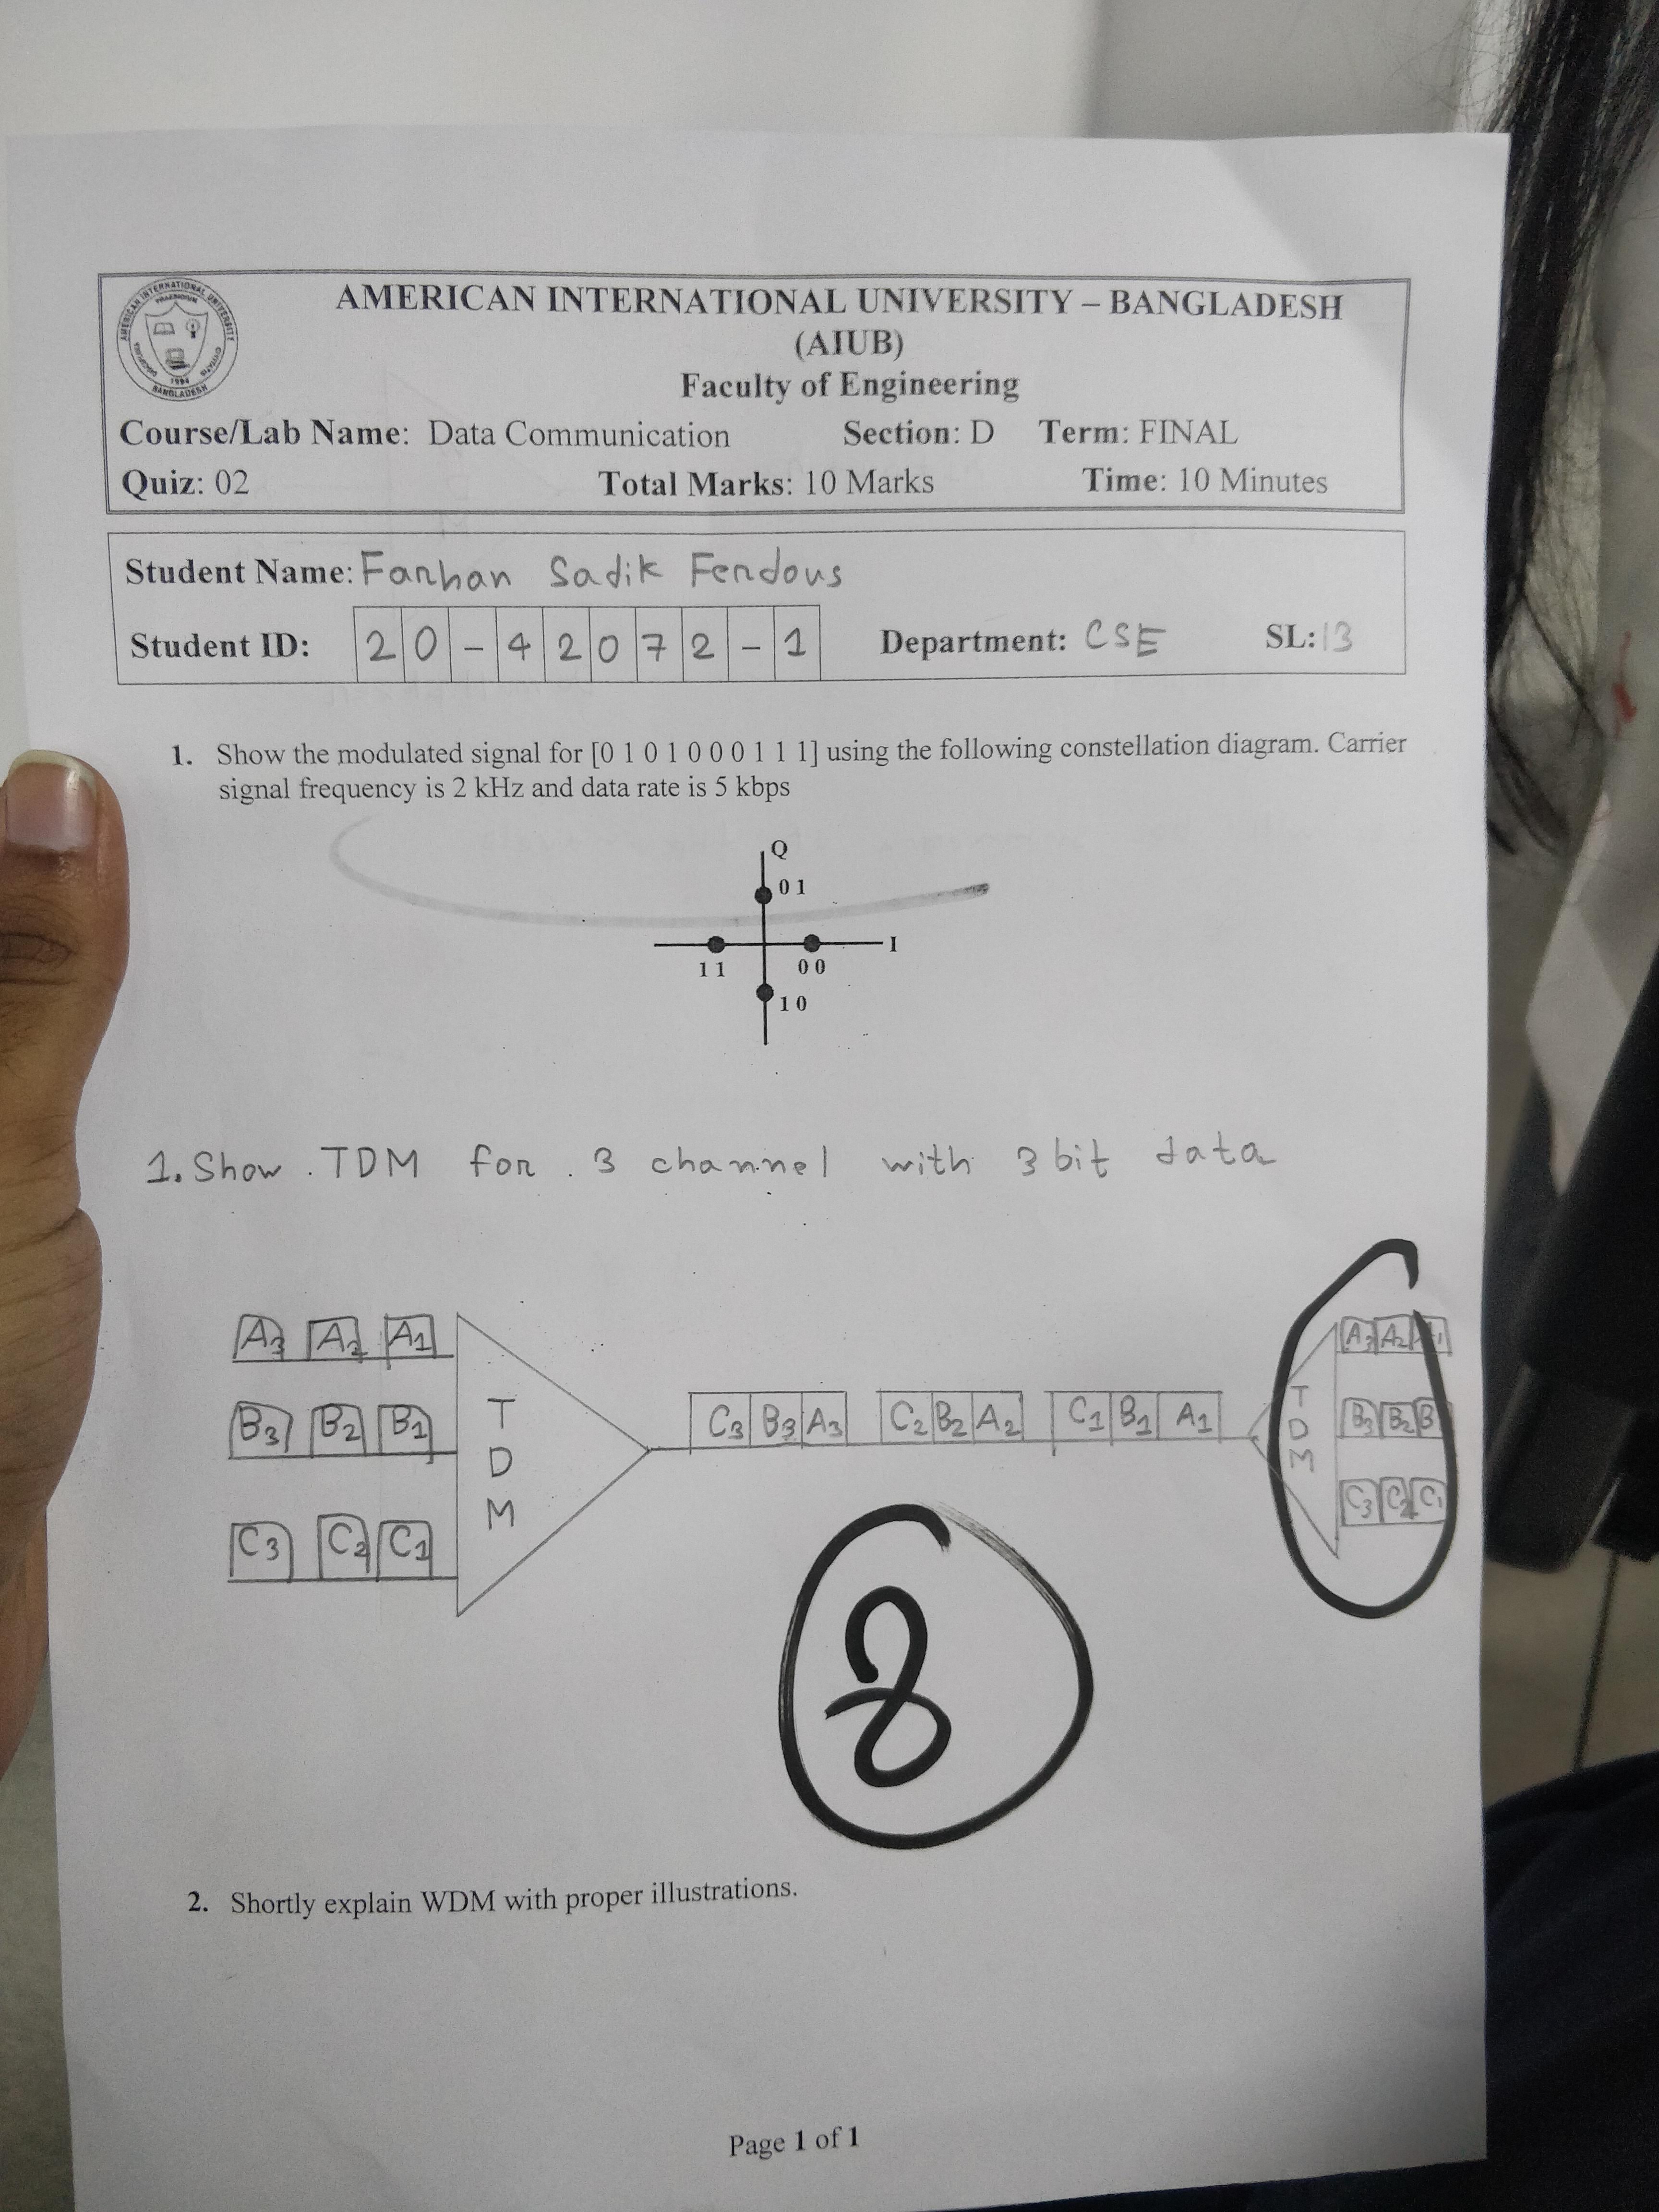 AMERICAN INTERNATIONAL UNIVERSITY – BANGLADESH
(AIUB)
Faculty of Engineering
Course/Lab Name: Data Communication Section: D Term: FINAL
Quiz: 02 Total Marks: 10 Marks Time: 10 Minutes
AMERICAN INTERNATIONAL UNIVERSITY
1994
BANGLADESH
Student Name: Farhan Sadik Ferdous
Student ID: 20-42072-1 Department: CSE SL: 13
1. Show the modulated signal for [0 1 0 1 0 0 0 1 1 1] using the following constellation diagram. Carrier
signal frequency is 2 kHz and data rate is 5 kbps
Q
0 1
I
1 1 0 0
1 0
1. Show TDM for 3 channel with 3 bit data
A3 A2 A1
B3 B2 B1
C3 C2 C1
T
D
M
C3 B3 A3 C2 B2 A2 C1 B1 A1
T
D
M
A3 A2 A1
B3 B2 B
C3 C2 C1
8
2. Shortly explain WDM with proper illustrations.
Page 1 of 1